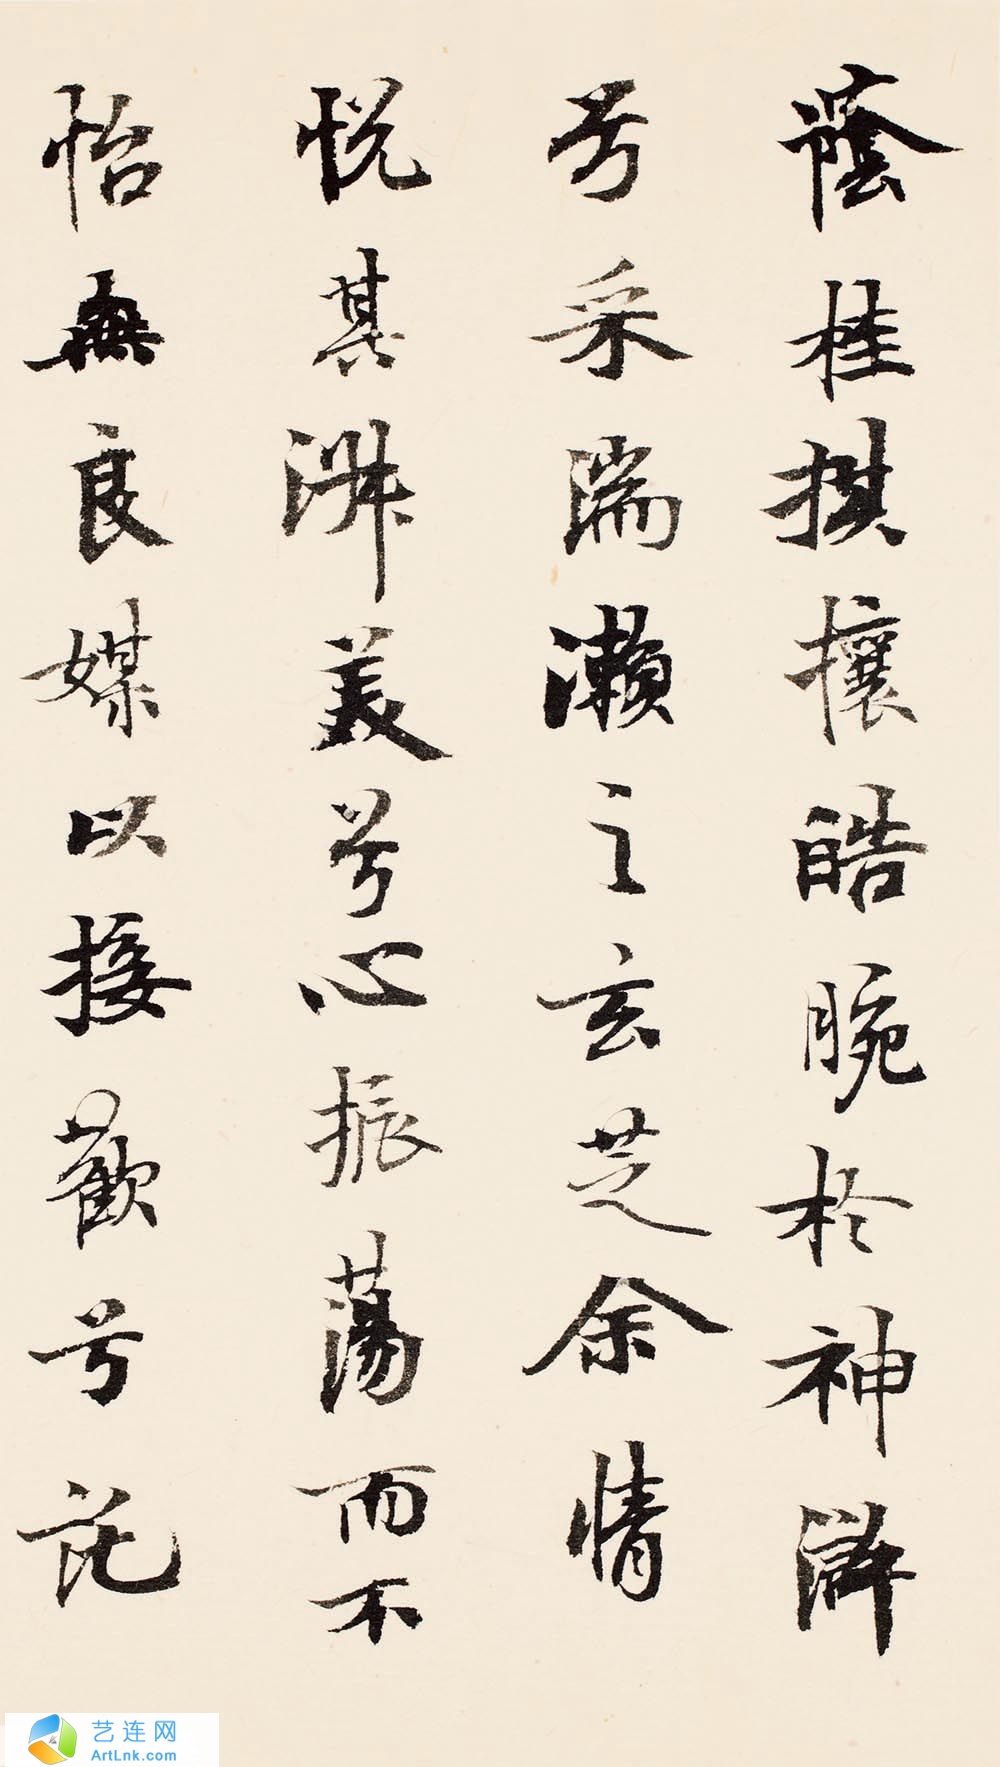 蔭桂旗攘皓腕於神滸
兮采湍瀨之玄芝余情
悅其淑美兮心振蕩而不
怡無良媒以接歡兮託
艺连网
ArtLnk.com